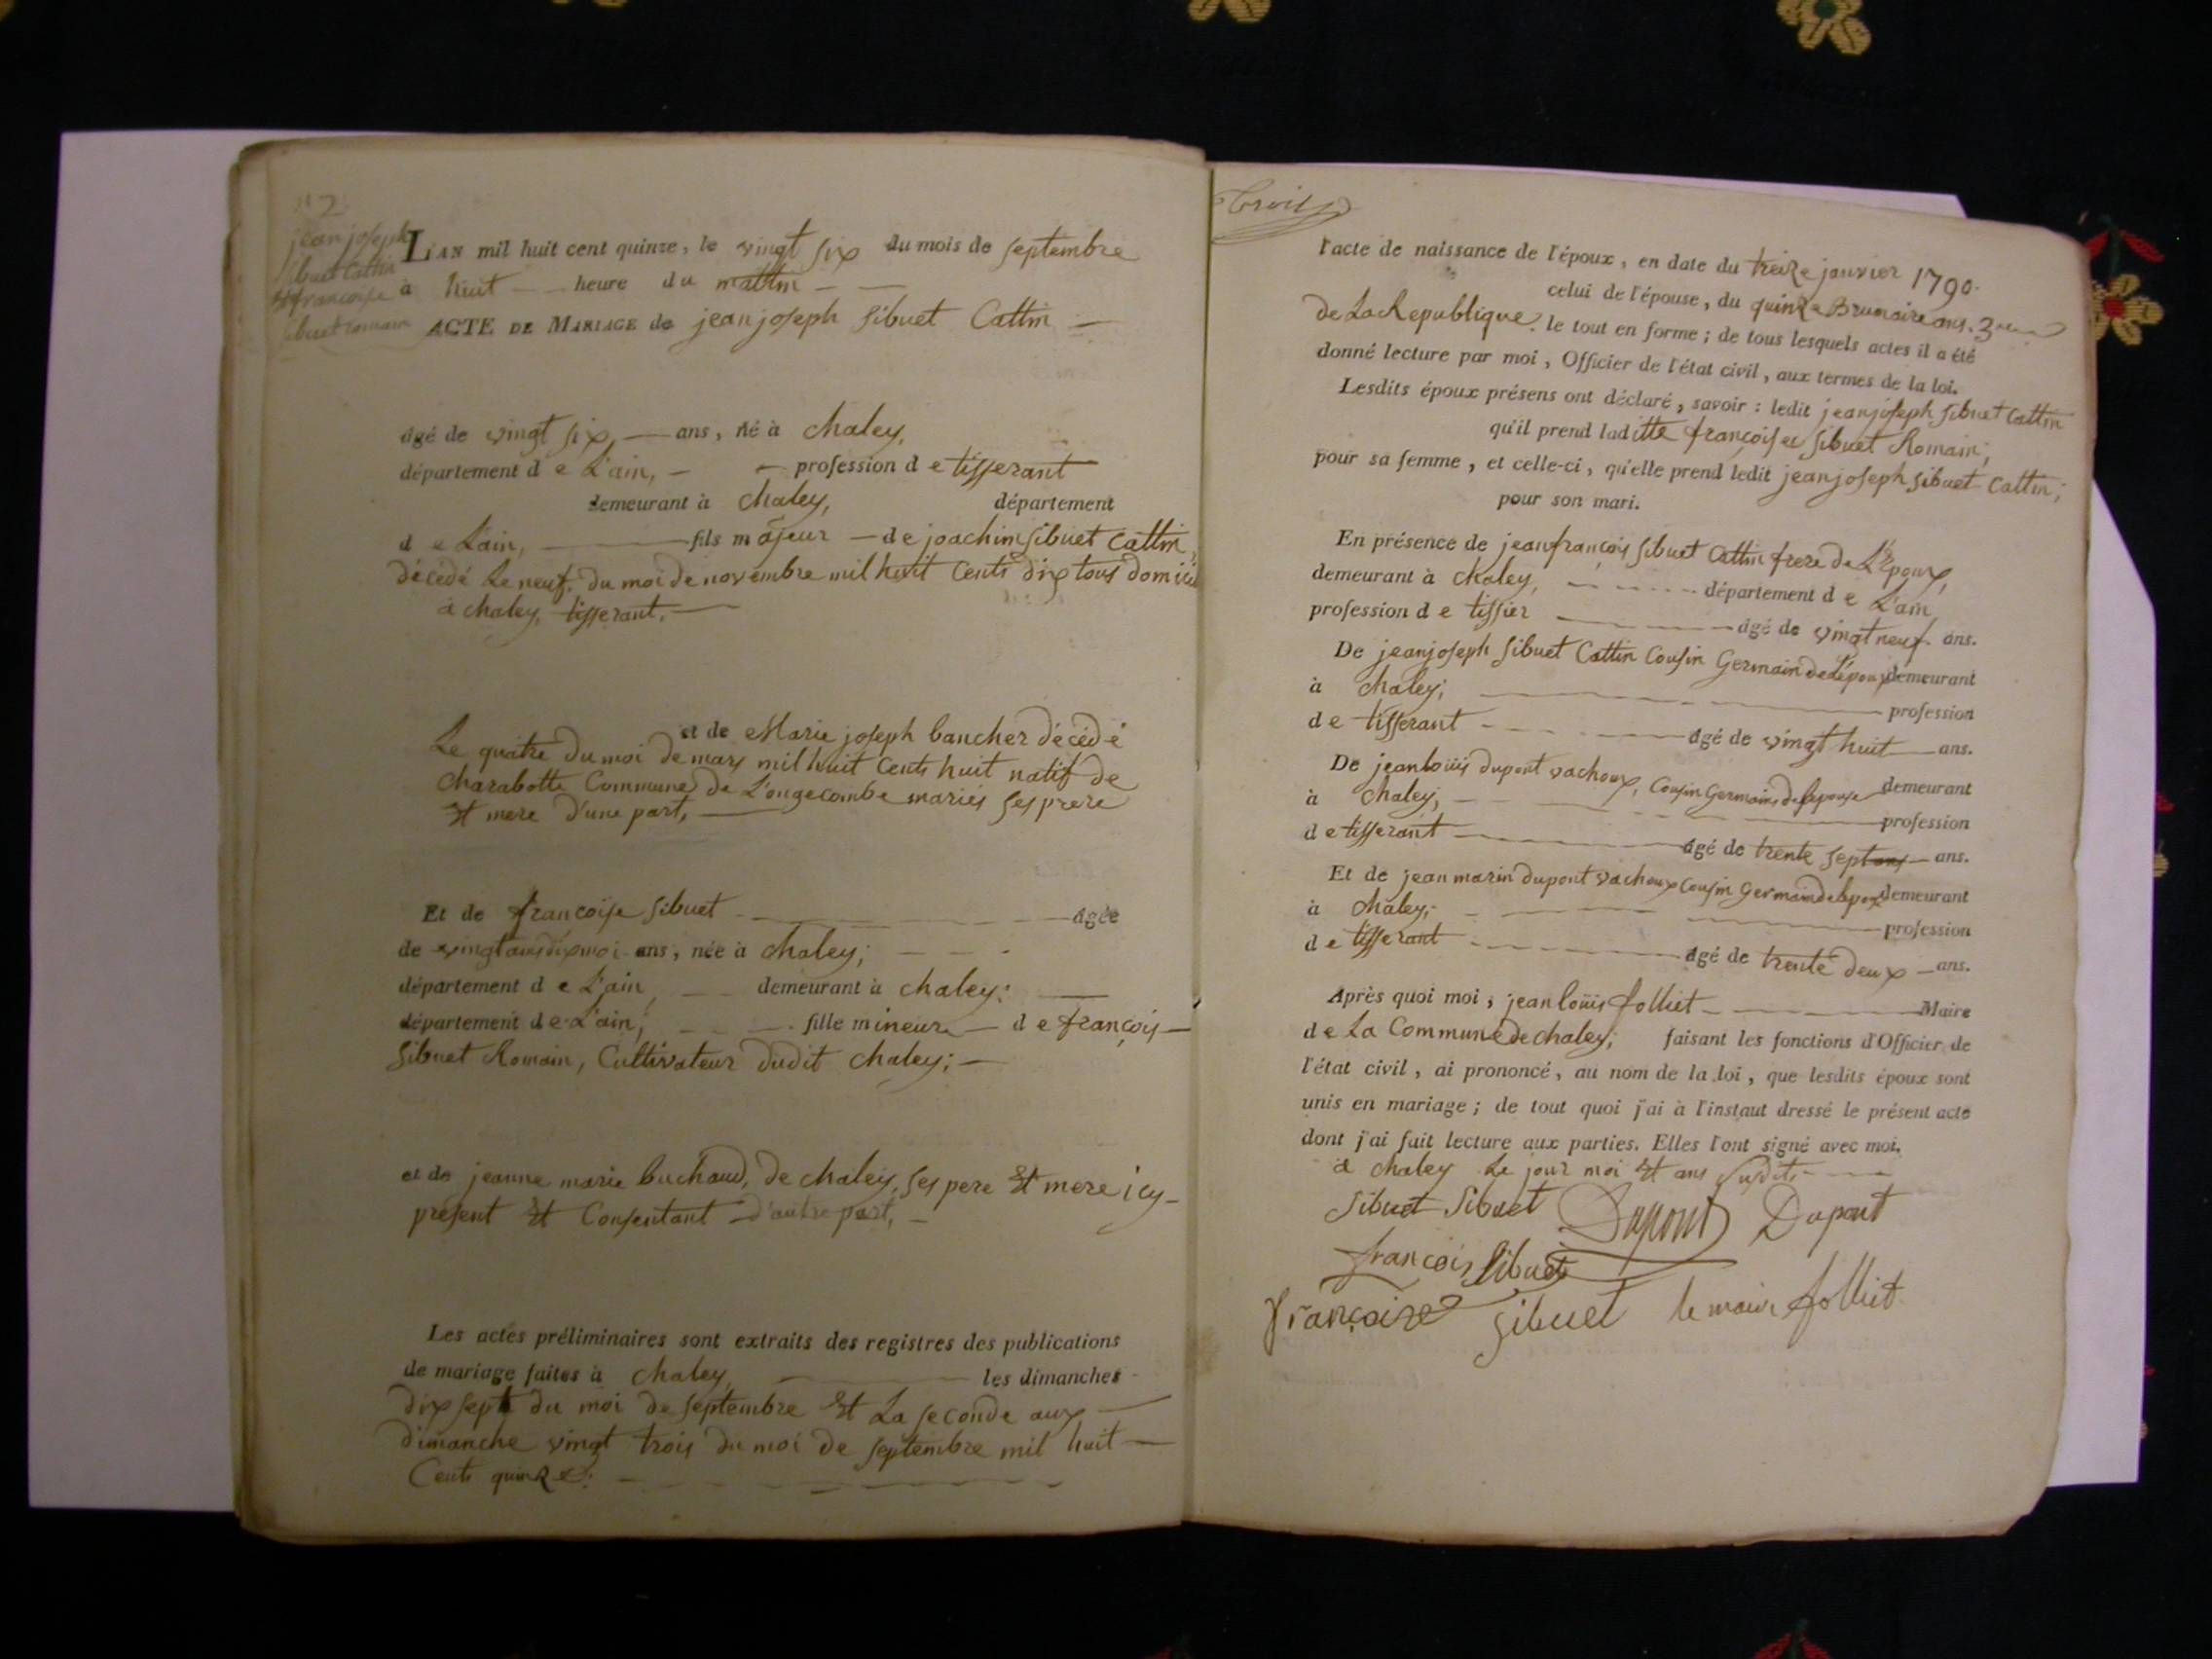 n° 2
jean joseph
sibuet Cattin
Et francoise
sibuet romain
L'AN mil huit cent quinze, le vingt six du mois de septembre
à huit heure du mattin
ACTE DE MARIAGE de jean joseph sibuet Cattin
âgé de vingt six, ans, né à Chaley,
département de L'ain, profession de tisserant
demeurant à Chaley, département
de L'ain, fils majeur de joachim sibuet Cattin,
décédé Le neuf du moi de novembre mil huit Cents dix tous domicié
à Chaley, tisserant,
et de Marie joseph bancher décédé
Le quatre du moi de mars mil huit Cents huit natif de
Charabotte Commune de L'ongecombe mariés ses prere
Et mere d'une part,
Et de françoise sibuet âgée
de vingt ans dix moi ans, née à Chaley;
département de L'ain, demeurant à Chaley;
département de L'ain; fille mineure de françois
sibuet Romain, Cultivateur dudit Chaley;
et de jeanne marie buchaud, de Chaley, ses pere Et mere icy
présent Et Consentant d'autre part,
Les actes préliminaires sont extraits des registres des publications
de mariage faites à Chaley, les dimanches
dix sept du moi de septembre Et La seconde aux
dimanche vingt trois du moi de septembre mil huit
Cents quinze;
trois
l'acte de naissance de l'époux, en date du treize janvier 1790.
celui de l'épouse, du quinze Brumaire ans. 3
de La Republique. le tout en forme; de tous lesquels actes il a été
donné lecture par moi, Officier de l'état civil, aux termes de la loi.
Lesdits époux présens ont déclaré, savoir : ledit jean joseph sibuet Cattin
qu'il prend laditte françoise sibuet Romain;
pour sa femme, et celle-ci, qu'elle prend ledit jean joseph sibuet Cattin;
pour son mari.
En présence de jean françois sibuet Cattin frere de L'Epoux,
demeurant à Chaley, département de L'ain
profession de tissier âgé de vingt neuf ans.
De jean joseph sibuet Cattin Cousin Germain de L'époux demeurant
à Chaley; profession
de tisserant âgé de vingt huit ans.
De jean louis dupont vachoux, Cousin Germains de lepouse demeurant
à Chaley, profession
de tisserant âgé de trente sept ans ans.
Et de jean marin dupont vachoux Cousin Germain de lepouse demeurant
à Chaley; profession
de tisserant âgé de trente deux ans.
Après quoi moi, jean loüis folliet Maire
de La Commune de Chaley; faisant les fonctions d'Officier de
l'état civil, ai prononcé, au nom de la loi, que lesdits époux sont
unis en mariage; de tout quoi j'ai à l'instaut dressé le présent acte
dont j'ai fait lecture aux parties. Elles l'ont signé avec moi.
à Chaley Le jour moi Et ans susdits
Sibuet Sibuet Dupont Dupont
francois Sibuet
françoise sibuet le maire folliet